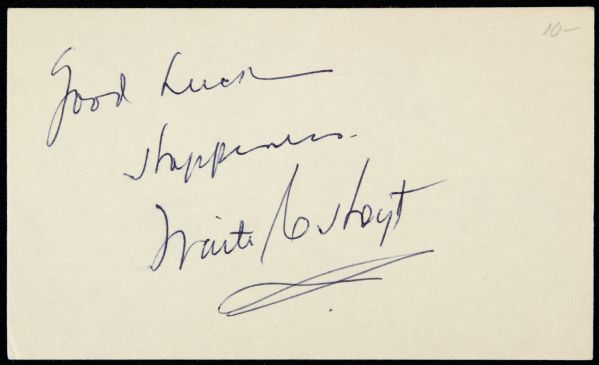 10-
Good Luck
Happiness.
Waite C Hoyt